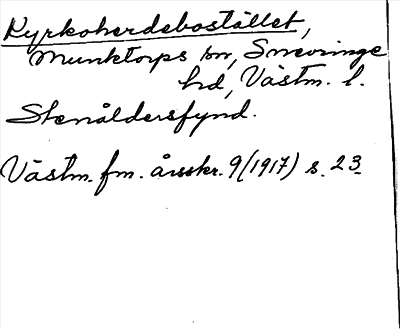 Kyrkoherdebostället,
Munktorps sn, Snevringe
hd, Västm. l.
Stenåldersfynd.
Västm. fm. årsskr. 9 (1917) s. 23